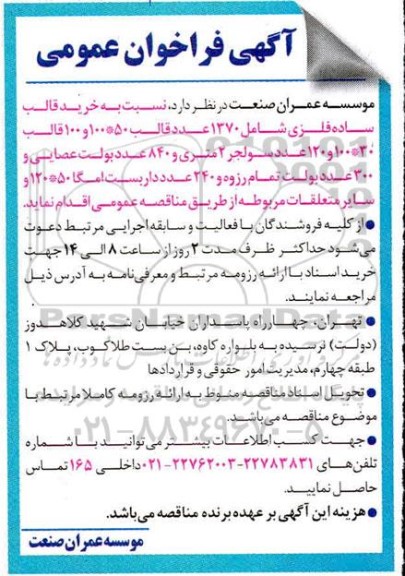 آگهی فراخوان عمومی
موسسه عمران صنعت در نظر دارد، نسبت به خرید قالب
ساده فلزی شامل ۱۳۷۰ عدد قالب ۵۰*۱۰۰ و ۱۰۰ قالب
۳۰*۱۰۰ و ۱۲۰ عدد سولجر ۲ متری و ۸۴۰ عدد بولت عصایی و
۳۰۰ عدد بولت تمام رزوه و ۲۴۰ عدد داربست امگا ۵۰*۱۲۰ و
سایر متعلقات مربوطه از طریق مناقصه عمومی اقدام نماید.
● از کلیه فروشندگان با فعالیت و سابقه اجرایی مرتبط دعوت
می‌شود حداکثر ظرف مدت ۲ روز از ساعت ۸ الی ۱۴ جهت
خرید اسناد با ارائه رزومه مرتبط و معرفی‌نامه به آدرس ذیل
مراجعه نمایند.
● تهران، چهارراه پاسداران خیابان شهید کلاهدوز
(دولت) نرسیده به بلوار کاوه، بن بست طلاکوب، پلاک ۱
طبقه چهارم، مدیریت امور حقوقی و قراردادها
● تحویل اسناد مناقصه منوط به ارائه رزومه کاملا مرتبط با
موضوع مناقصه می‌باشد.
● جهت کسب اطلاعات بیشتر می‌توانید با شماره
تلفن‌های ۲۲۷۸۳۸۳۱-۲۲۷۶۲۰۰۳-۰۲۱ داخلی ۱۶۵ تماس
حاصل نمایید.
● هزینه این آگهی بر عهده برنده مناقصه می‌باشد.
موسسه عمران صنعت
ParsNamadData
۰۲۱-۸۸۳۴۹۶۷۰-۵